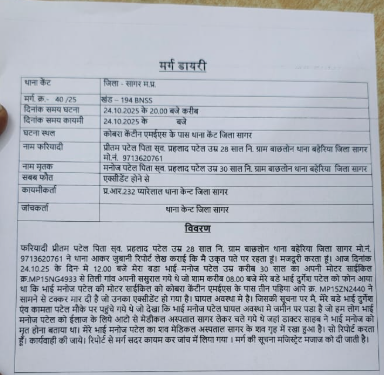 मर्ग डायरी
थाना केंट जिला - सागर म.प्र.
मर्ग. क्र.- 40 /25 खंड – 194 BNSS
दिनांक समय घटना 24.10.2025 के 20.00 बजे करीब
दिनांक समय कायमी 24.10.2025 के बजे
घटना स्थल कोबरा केंटीन एमईएस के पास थाना केंट जिला सागर
नाम फरियादी प्रीतम पटेल पिता स्व. प्रहलाद पटेल उम्र 28 साल नि. ग्राम बाछलोन थाना बहेरिया जिला सागर
मो.नं. 9713620761
नाम मृतक मनोज पटेल पिता स्व. प्रहलाद पटेल उम्र 30 साल नि. ग्राम बाछलोन थाना बहेरिया जिला सागर
सबब फौत एक्सीडेंट होने से
कायमीकर्ता प्र.आर.232 प्यारेलाल थाना केन्ट जिला सागर
जांचकर्ता थाना केन्ट जिला सागर
विवरण
फरियादी प्रीतम पटेल पिता स्व. प्रहलाद पटेल उम्र 28 साल नि. ग्राम बाछलोन थाना बहेरिया जिला सागर मो.नं.
9713620761 ने थाना आकर जुबानी रिपोर्ट लेख कराई कि मै उक्त पते पर रहता हूं। मजदूरी करता हूं। आज दिनांक
24.10.25 के दिन मे 12.00 बजे मेरा बडा भाई मनोज पटेल उम्र करीब 30 साल का अपनी मोटर साईकिल
क्र.MP15NG4933 से तिली गांव अपनी ससुराल गये थे जो शाम करीब 08.00 बजे मेरे बडे भाई दुर्गेश पटेल को फोन आया
था कि भाई मनोज पटेल की मोटर साईकिल को कोबरा केंटीन एमईएस के पास तीन पहिया आपे क्र. MP15ZN2440 ने
सामने से टक्कर मार दी है जो उनका एक्सीडेंट हो गया है। घायल अवस्था मे है। जिसकी सूचना पर मै, मेरे बडे भाई दुर्गेश
एंव कामला पटेल मौके पर पहुंचे गये थे जो देखा कि भाई मनोज पटेल घायल अवस्था मे जमीन पर पडा है जो हम लोग भाई
मनोज पटेल को ईलाज के लिये आटो से मेडीकल अस्पताल सागर लेकर चले गये थे जहां डाक्टर साहब ने भाई मनोज को
मृत होना बताया था। मेरे भाई मनोज पटेल का शव मेडिकल अस्पताल सागर के शव गृह में रखा हुआ है। सो रिपोर्ट करता
हूँ। कार्यवाही की जाये। रिपोर्ट से मर्ग सदर कायम कर जांच में लिया गया । मर्ग की सूचना मजिस्ट्रेट मजाज को दी जाती है।